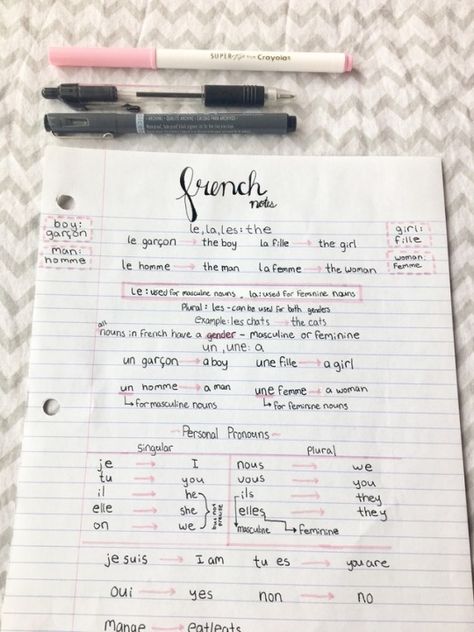 SUPER Tips from Crayola
french
notes
le, la, les: the
boy: garçon
girl: fille
le garçon → the boy la fille → the girl
man: homme
woman: femme
le homme → the man la femme → the woman
le: used for masculine nouns, la: used for feminine nouns
Plural: les - can be used for both genders
example: les chats → the cats
all nouns in French have a gender - masculine or feminine
un, une: a
un garçon → a boy une fille → a girl
un homme → a man une femme → a woman
↳ for masculine nouns ↳ for feminine nouns
- Personal Pronouns -
Singular Plural
je → I nous → we
tu → you vous → you
il → he ils → they
elle → she elles → they
on → we masculine feminine
je suis → I am tu es → you are
oui → yes non → no
mange → eat/eats